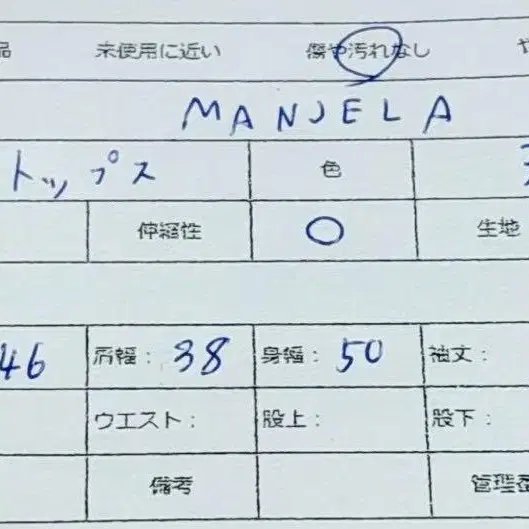 品 未使用に近い 傷や汚れなし や
MANJELA
トップス 色
伸縮性 ○ 生地
46 肩幅: 38 身幅: 50 袖丈:
ウエスト: 股上: 股下:
備考 管理番